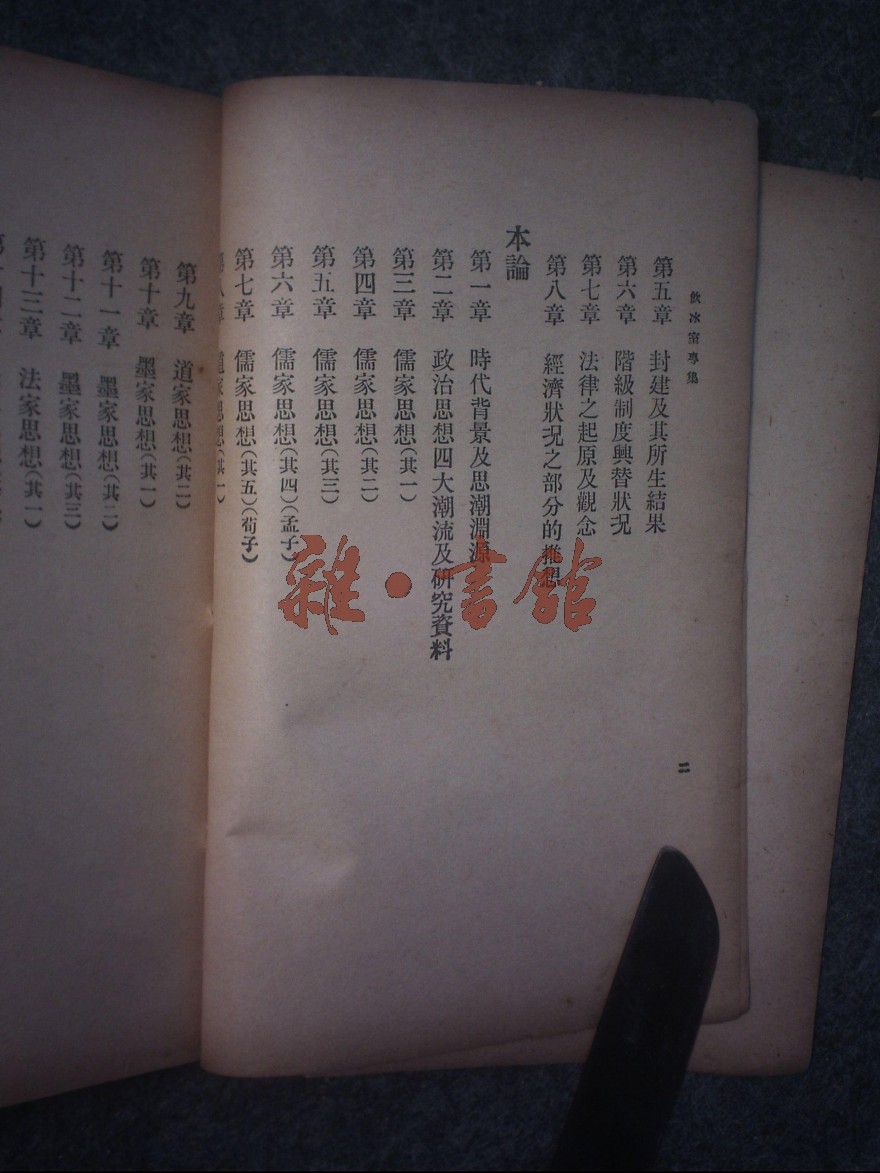 飲冰室專集
第五章 封建及其所生結果
第六章 階級制度興替狀況
第七章 法律之起原及觀念
第八章 經濟狀況之部分的推想
本論
第一章 時代背景及思潮淵源
第二章 政治思想四大潮流及研究資料
第三章 儒家思想(其一)
第四章 儒家思想(其二)
第五章 儒家思想(其三)
第六章 儒家思想(其四)(孟子)
第七章 儒家思想(其五)(荀子)
第八章 道家思想(其一)
二
第九章 道家思想(其二)
第十章 墨家思想(其一)
第十一章 墨家思想(其二)
第十二章 墨家思想(其三)
第十三章 法家思想(其一)
雜·書館